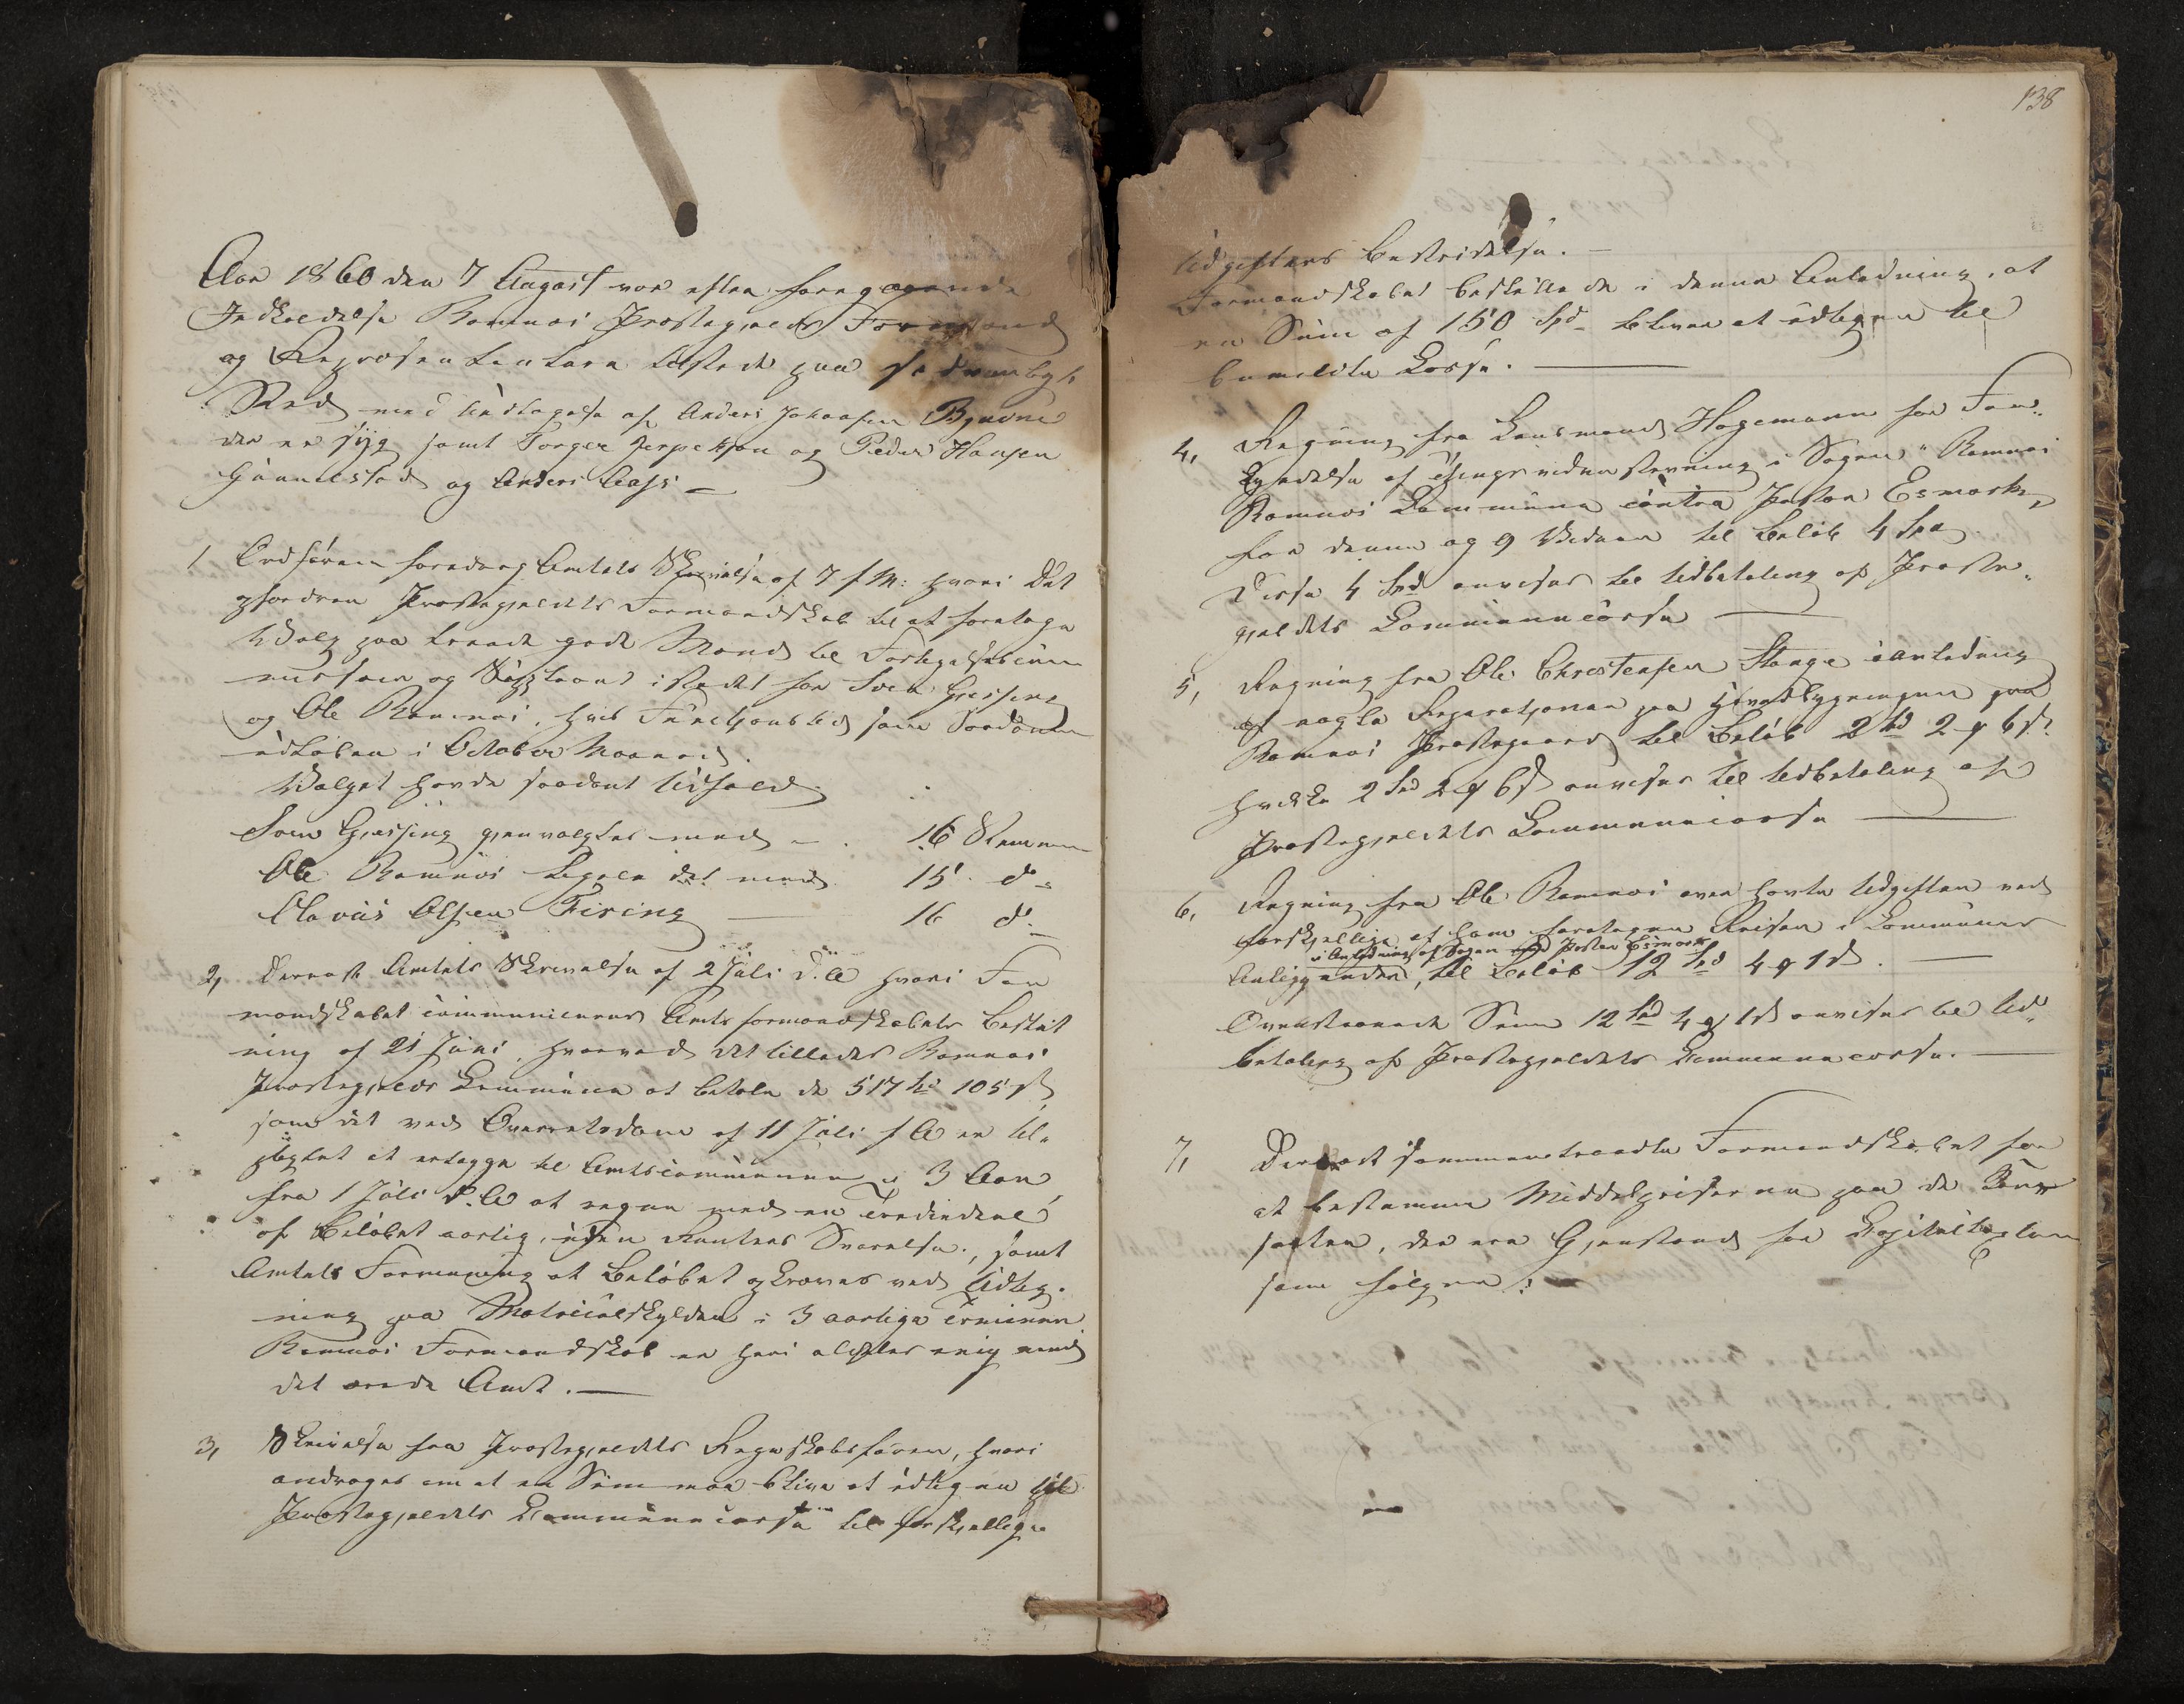 Aar 1860 den 7 August var efter foregaaende
Indkaldelse Ramnæs Prestegjelds Formænd
og Repræsentantere tilstede paa sædvanligt
Sted med Undtagelse af Anders Johansen Bjørne
der er syg samt Torger Jespersen og Peder Hansen
Gunnestad og Anders Aass –
1 Ordføreren foredrog Amtets Skrivelse af 7 f.M: hvori det
opfordrer Prestegjeldets Formandskab til at foretage
Valg paa trende gode Mænd til Forligelsescom
missær og Suppleant istedet for Søren Gjessing
og Ole Ramnæs, hvis Functionstid som saadanne
udløber i October Maaned.
Valget havde saadant Udfald.
Søren Gjessing gjenvalgtes med – 16 Stemmer
Ole Ramnæs ligeledes med 15 do
Clavius Olsen Firing – 16 do
2, Dernæst Amtets Skrivelse af 2 Juli d.A hvori For
mandskabet communiceres Amtsformandskabets Beslut
ning af 21 Juni, hvorved det tillades Ramnæs
Prestegjelds Commune at betale de 517 Spd 105 s
som det ved Overretsdom af 11 Juli f A er til-
pligtet at erlægge til Amtscommunen i 3 Aar,
fra 1 Juli d.A at regne med en Trediedeel
af Beløbet aarlig, uden Renters Svarelse, samt
Amtets Formening at Beløbet opkræves ved Udlig-
ning paa Matriculskylden i 3 aarlige Terminer
Ramnæs Formandskab er heri aldeles enig med
det ærede Amt. –
3, Skrivelse fra Prestegjeldets Regnskabsfører, hvori
andrages om at en Sum maa blive at udligne til
Prestegjeldets Communecasse til forskjellige
138
Udgifters Bestridelse. –
Formandskabet besluttede i denne Anledning, at
en Sum af 150 Spd bliver at udligne til
bemeldte Casse. –
4, Regning fra Lensmand Hagemann for For-
kyndelse af Thingsvidnestevning i Sagen "Ramnæs
Ramnæs Commune contra Pastor Esmark,
for denne og 9 Vidner til Beløb 4 Spd
Disse 4 Spd anvises til Udbetaling af Preste-
gjeldets Communecasse –
5, Regning fra Ole Christensen Stange i anledning
af nogle Reparationer paa Hovedbygningen paa
Ramnæs Prestegaard til Beløb 2 Spd 2 ort 6 s.
hvilke 2 Spd 2 ort 6 s anvises til Udbetaling af
Prestegjeldets Communecasse –
6, Regning fra Ole Ramnæs over havte Udgifter ved
forskjellige af ham foretagne Reiser i Communens
i Anledning af Sagen med Pastor Esmark
Anliggender, til Beløb 12 Spd 4 ort 1 s. –
Ovenstaaende Sum 12 Spd 4 ort 1 s anvises til Ud-
betaling af Prestegjeldets Communecasse. –
7, Dernæst sammentraadte Formandskabet for
at bestemme Middelpriserne paa de Korn
sorter, der ere Gjenstand for Capitelstaxten
som følger: –